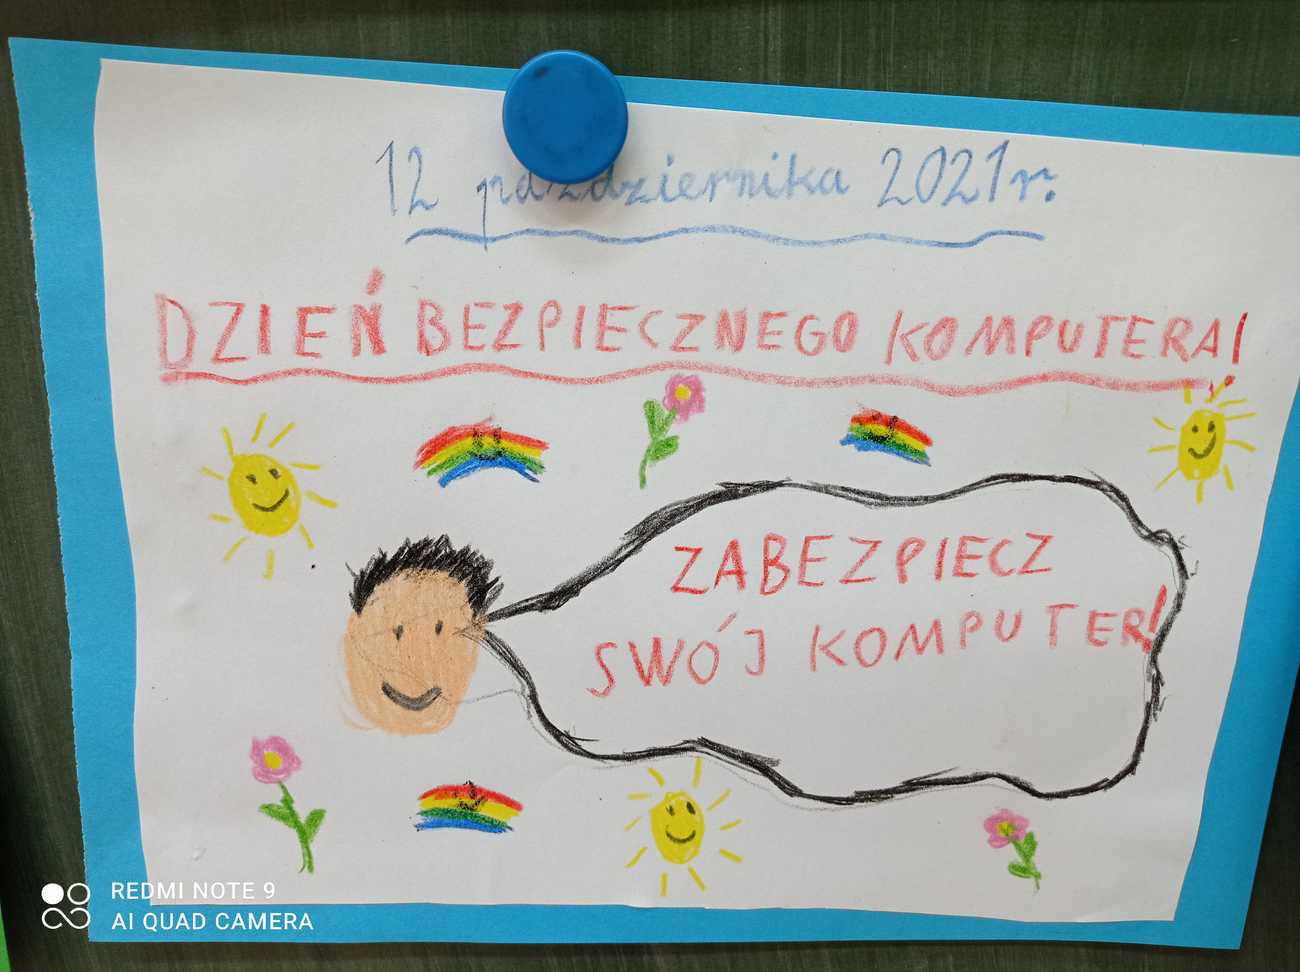 12 października 2021r.
DZIEŃ BEZPIECZNEGO KOMPUTERA!
ZABEZPIECZ
SWÓJ KOMPUTER!
REDMI NOTE 9
AI QUAD CAMERA